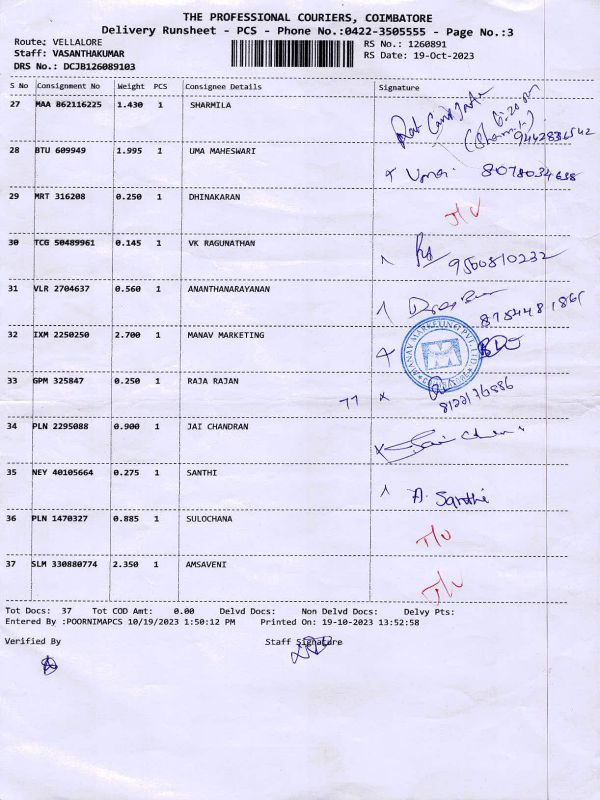 THE PROFESSIONAL COURIERS, COIMBATORE
Delivery Runsheet - PCS - Phone No.:0422-3505555 - Page No.:3
Route: VELLALORE
RS No.: 1260891
Staff: VASANTHAKUMAR
RS Date: 19-Oct-2023
DRS No.: DCJB126089103
S No Consignment No Weight PCS Consignee Details Signature
27 MAA 862116225 1.430 1 SHARMILA
6:20 pm
28 BTU 609949 1.995 1 UMA MAHESWARI
Uma. 8078034638
29 MRT 316208 0.250 1 DHINAKARAN
T/V
30 TCG 50489961 0.145 1 VK RAGUNATHAN
9500810232
31 VLR 2704637 0.560 1 ANANTHANARAYANAN
32 IXM 2250250 2.700 1 MANAV MARKETING
MANAV MARKETING PVT. LTD.
33 GPM 325847 0.250 1 RAJA RAJAN
77 x
8122176886
34 PLN 2295088 0.900 1 JAI CHANDRAN
35 NEY 40105664 0.275 1 SANTHI
A. Santhi
36 PLN 1470327 0.885 1 SULOCHANA
T/V
37 SLM 330880774 2.350 1 AMSAVENI
T/V
Tot Docs: 37 Tot COD Amt: 0.00 Delvd Docs: Non Delvd Docs: Delvy Pts:
Entered By :POORNIMAPCS 10/19/2023 1:50:12 PM Printed On: 19-10-2023 13:52:58
Verified By Staff Signature